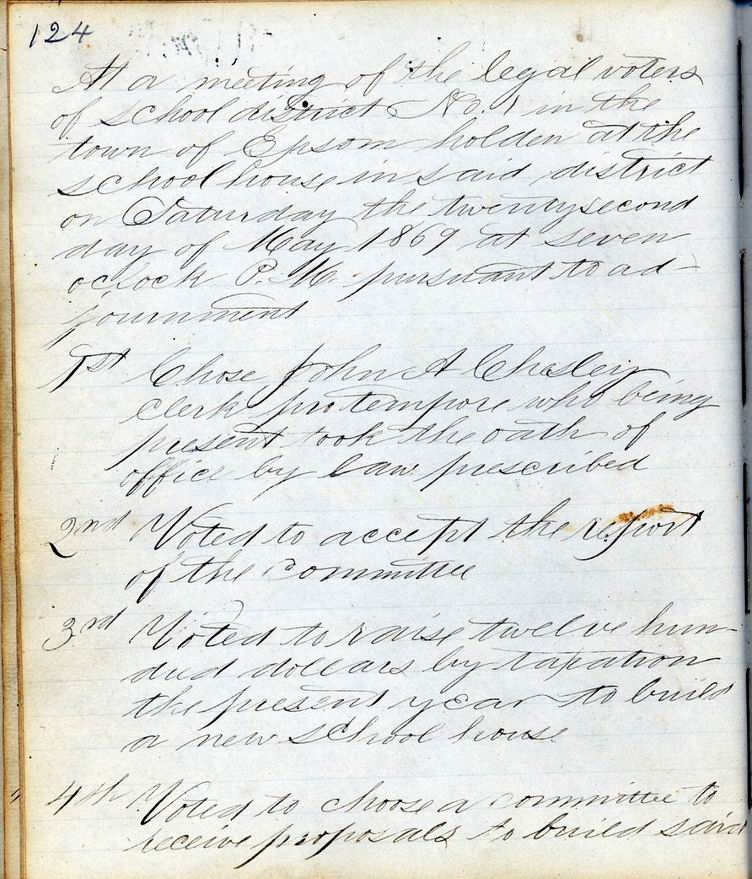 124
At a meeting of the legal voters
of school district No. 1 in the
town of Epsom holden at the
school house in said district
on Saturday the twenty second
day of May 1869 at seven
oclock P. M. pursuant to ad-
journment
1st Chose John A Chesley
clerk pro tempore who being
present took the oath of
office by law prescribed
2nd Voted to accept the report
of the committee
3rd Voted to raise twelve hun-
dred dollars by taxation
the present year to build
a new school house
4th Voted to choose a committee to
receive proposals to build said